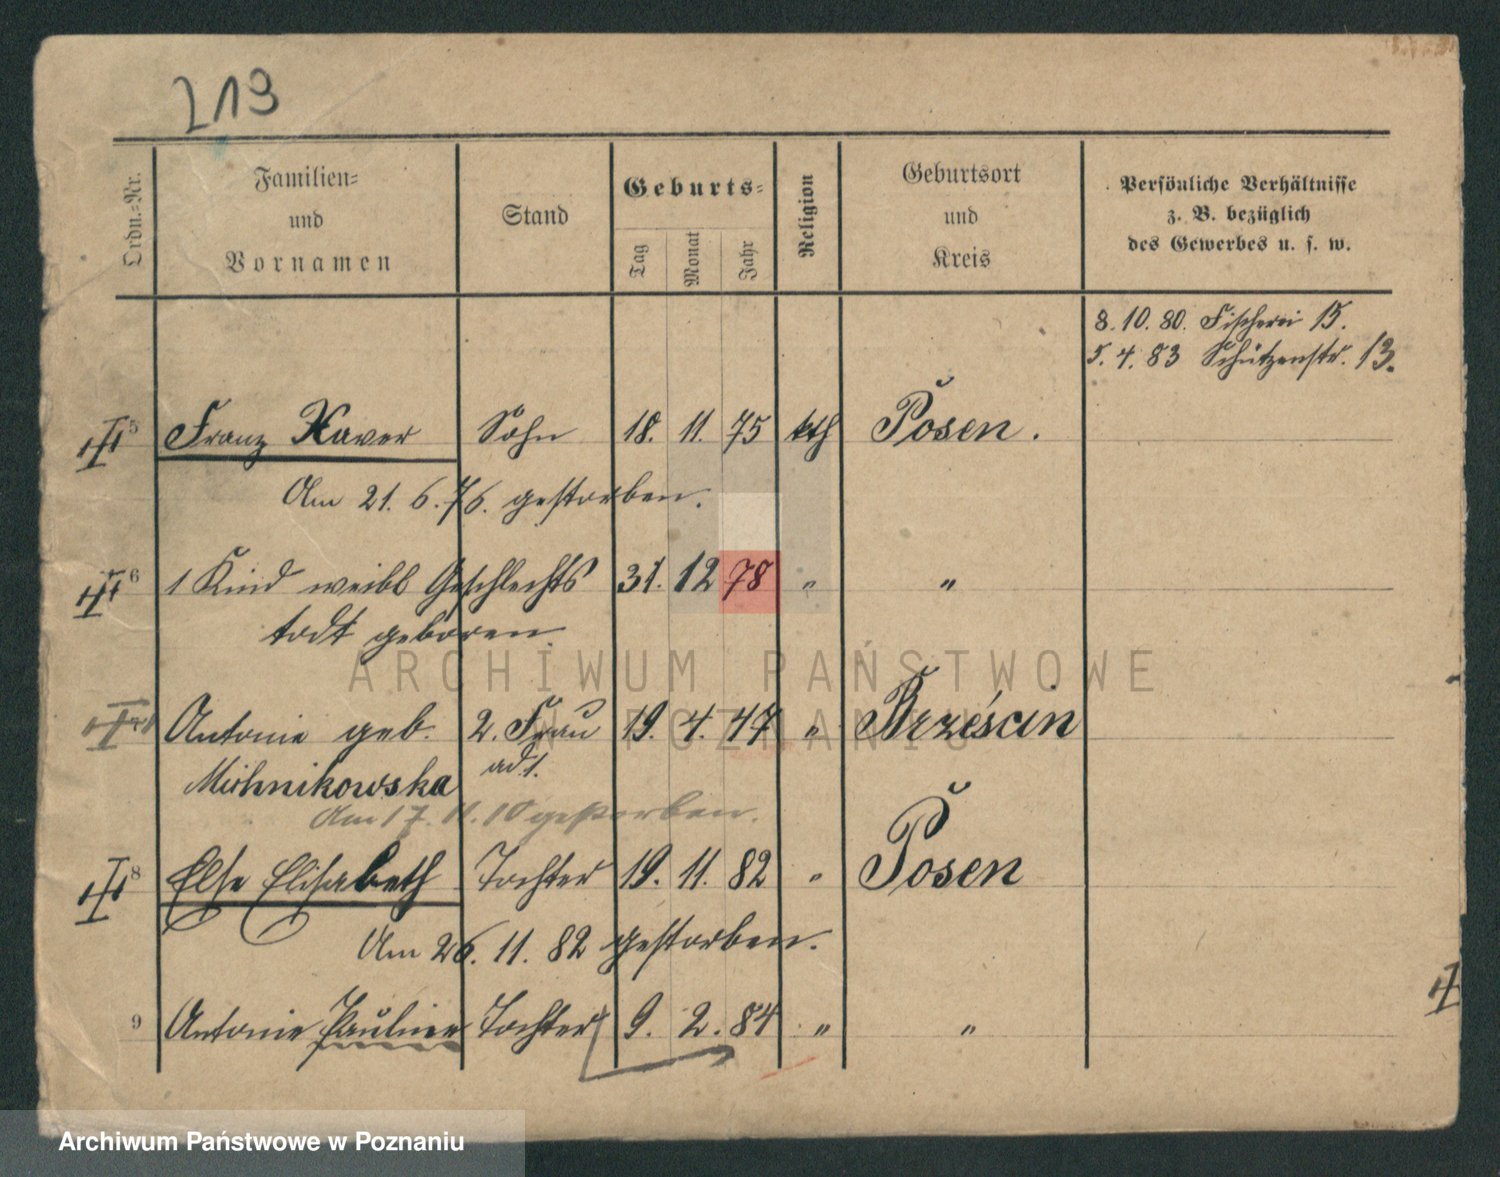 213
Ordn.-Nr.
Familien-
und
Vornamen
Stand
Geburts-
Tag
Monat
Jahr
Religion
Geburtsort
und
Kreis
Persönliche Verhältnisse
z. B. bezüglich
des Gewerbes u. s. w.
8. 10. 80. Fischerei 15.
5. 4. 83 Schützenstr. 13.
5 Franz Xaver Sohn 18. 11. 75 kth Posen.
Am 21. 6. 76. gestorben.
6 1 Kind weibl Geschlechts 31. 12 78 " "
todt geboren.
7 Antonie geb. 2. Frau 19. 4. 47 " Brześcin
Michnikowska ad 1.
Am 17. 11. 10 gestorben.
8 Else Elisabeth Tochter 19. 11. 82 " Posen
Am 26. 11. 82 gestorben.
9 Antonie Pauline Tochter 9. 2. 84 " "
ARCHIWUM PAŃSTWOWE
W POZNANIU
Archiwum Państwowe w Poznaniu